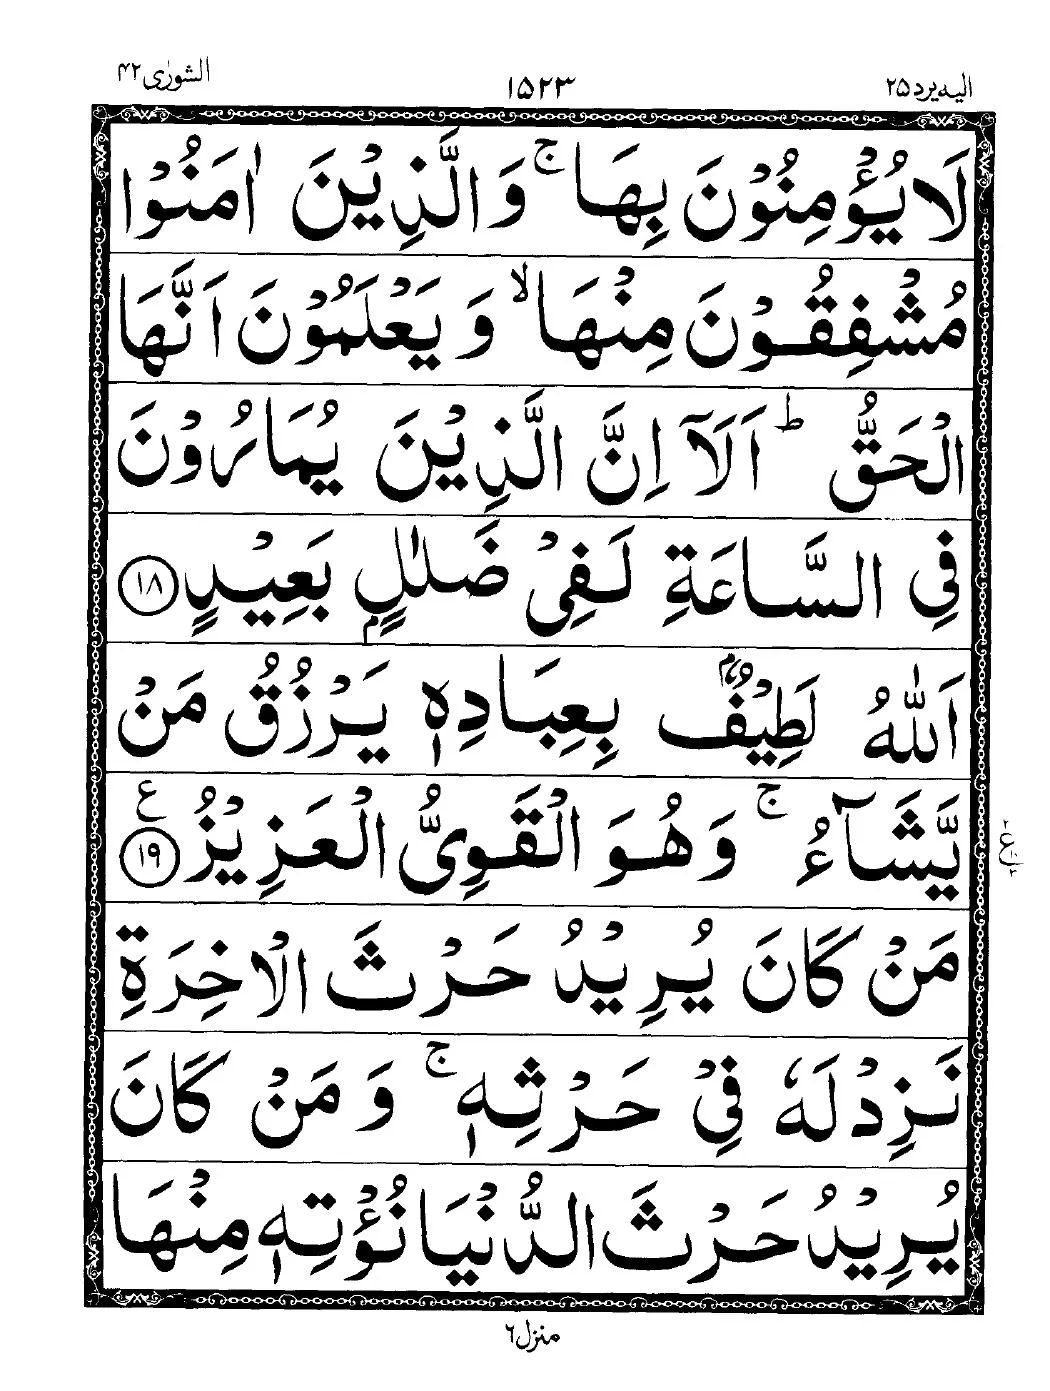 الیه یرد ۲۵ ۱۵۲۳ الشورٰی ۴۲
لَا یُؤْمِنُوْنَ بِهَا ۚ وَالَّذِیْنَ اٰمَنُوْا
مُشْفِقُوْنَ مِنْهَا ۙ وَ یَعْلَمُوْنَ اَنَّهَا
الْحَقُّ ؕ اَلَاۤ اِنَّ الَّذِیْنَ یُمَارُوْنَ
فِی السَّاعَةِ لَفِیْ ضَلٰلٍۭ بَعِیْدٍ ﴿۱۸﴾
اَللّٰهُ لَطِیْفٌۢ بِعِبَادِهٖ یَرْزُقُ مَنْ
یَّشَآءُ ۚ وَهُوَ الْقَوِیُّ الْعَزِیْزُ ﴿۱۹﴾ ع
۲ ع ۱۰ ۲
مَنْ كَانَ یُرِیْدُ حَرْثَ الْاٰخِرَةِ
نَزِدْ لَهٗ فِیْ حَرْثِهٖ ۚ وَ مَنْ كَانَ
یُرِیْدُ حَرْثَ الدُّنْیَا نُؤْتِهٖ مِنْهَا
منزل ۶